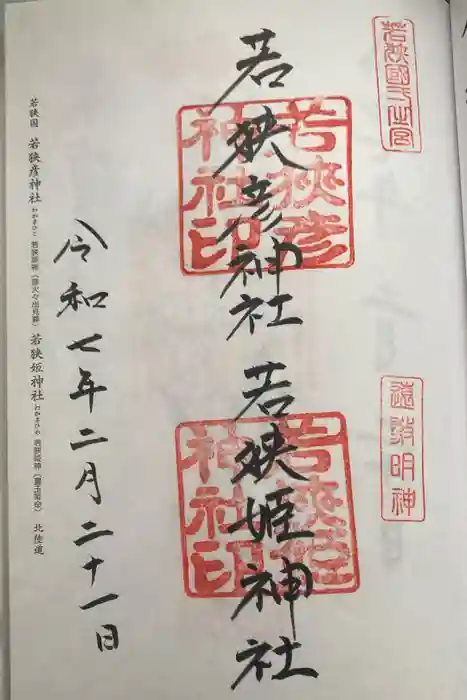 若狭國一之宮
遠敷明神
若狭彦神社
若狭彦神社印
若狭姫神社
若狭姫神社印
令和七年二月二十一日
若狭国 若狭彦神社 わかさひこ 若狭彦神（彦火々出見尊） 若狭姫神社 わかさひめ 若狭姫神（豊玉姫命） 北陸道